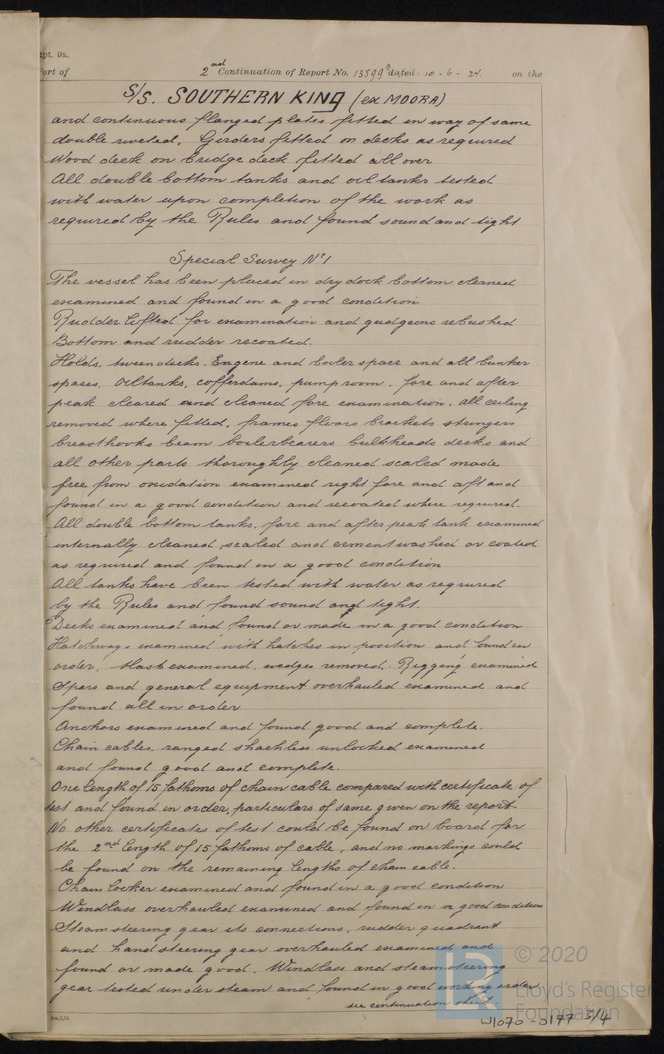 Rpt. 9a.
Port of 2nd Continuation of Report No. 13599a dated 10 - 6 - 24. on the
S/S. SOUTHERN KING (ex MOORA)
and continuous flanged plates fitted in way of same
double riveted. Girders fitted on decks as required
Wood deck on bridge deck fitted all over
All double bottom tanks and oil tanks tested
with water upon completion of the work as
required by the Rules and found sound and tight
Special Survey No 1
The vessel has been placed in dry dock bottom cleaned
examined and found in a good condition
Rudder lifted for examination and gudgeons rebushed
Bottom and rudder recoated.
Holds, tween decks. Engine and boiler space and all bunker
spaces. Oiltanks, cofferdams, pumproom. fore and after
peak cleared and cleaned fore examination. All ceiling
removed where fitted, frames floors brackets stringers
breasthooks beam boilerbearers bulkheads decks and
all other parts thoroughly cleaned scaled made
free from oxidation examined right fore and aft and
found in a good condition and recoated where required.
All double bottom tanks, fore and after peak tank examined
internally cleaned scaled and cementwashed or coated
as required and found in a good condition
All tanks have been tested with water as required
by the Rules and found sound and tight.
Decks examined and found or made in a good condition
Hatchways examined with hatches in position and found in
order. Mast examined, wedges removed, Rigging examined
Spars and general equipment overhauled examined and
found all in order
Anchors examined and found good and complete.
Chain cables, ranged shackles unlocked examined
and found good and complete.
One length of 15 fathoms of chain cable compared with certificate of
test and found in order, particulars of same given on the report.
No other certificates of test could be found on board for
the 2nd length of 15 fathoms of cable, and no markings could
be found on the remaining lengths of chain cable.
Chain locker examined and found in a good condition
Windlass overhauled examined and found in a good condition
Steam steering gear its connections, rudder quadrant
and hand steering gear overhauled examined and
found or made good. Windlass and steam steering
gear tested under steam and found in good working order
see continuation sheet
© 2020
Lloyd's Register
Foundation
W1070 - 0177 3/4